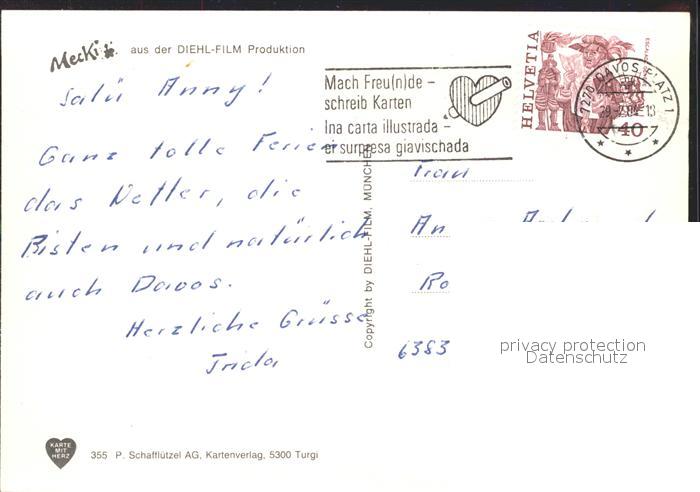 Mecki aus der DIEHL-FILM Produktion
Salü Anny!
Ganz tolle Ferien
das Wetter, die
Pisten und natürlich
auch Davos.
Herzliche Grüsse
Frida
Copyright by DIEHL-FILM, MÜNCHEN
Mach Freu(n)de –
schreib Karten
Ina carta illustrada –
er surpresa giavischada
HELVETIA
40
7270 DAVOS PLATZ 1
Frau
An
Ro
6383
privacy protection
Datenschutz
KARTE
MIT
HERZ
355 P. Schafflützel AG, Kartenverlag, 5300 Turgi